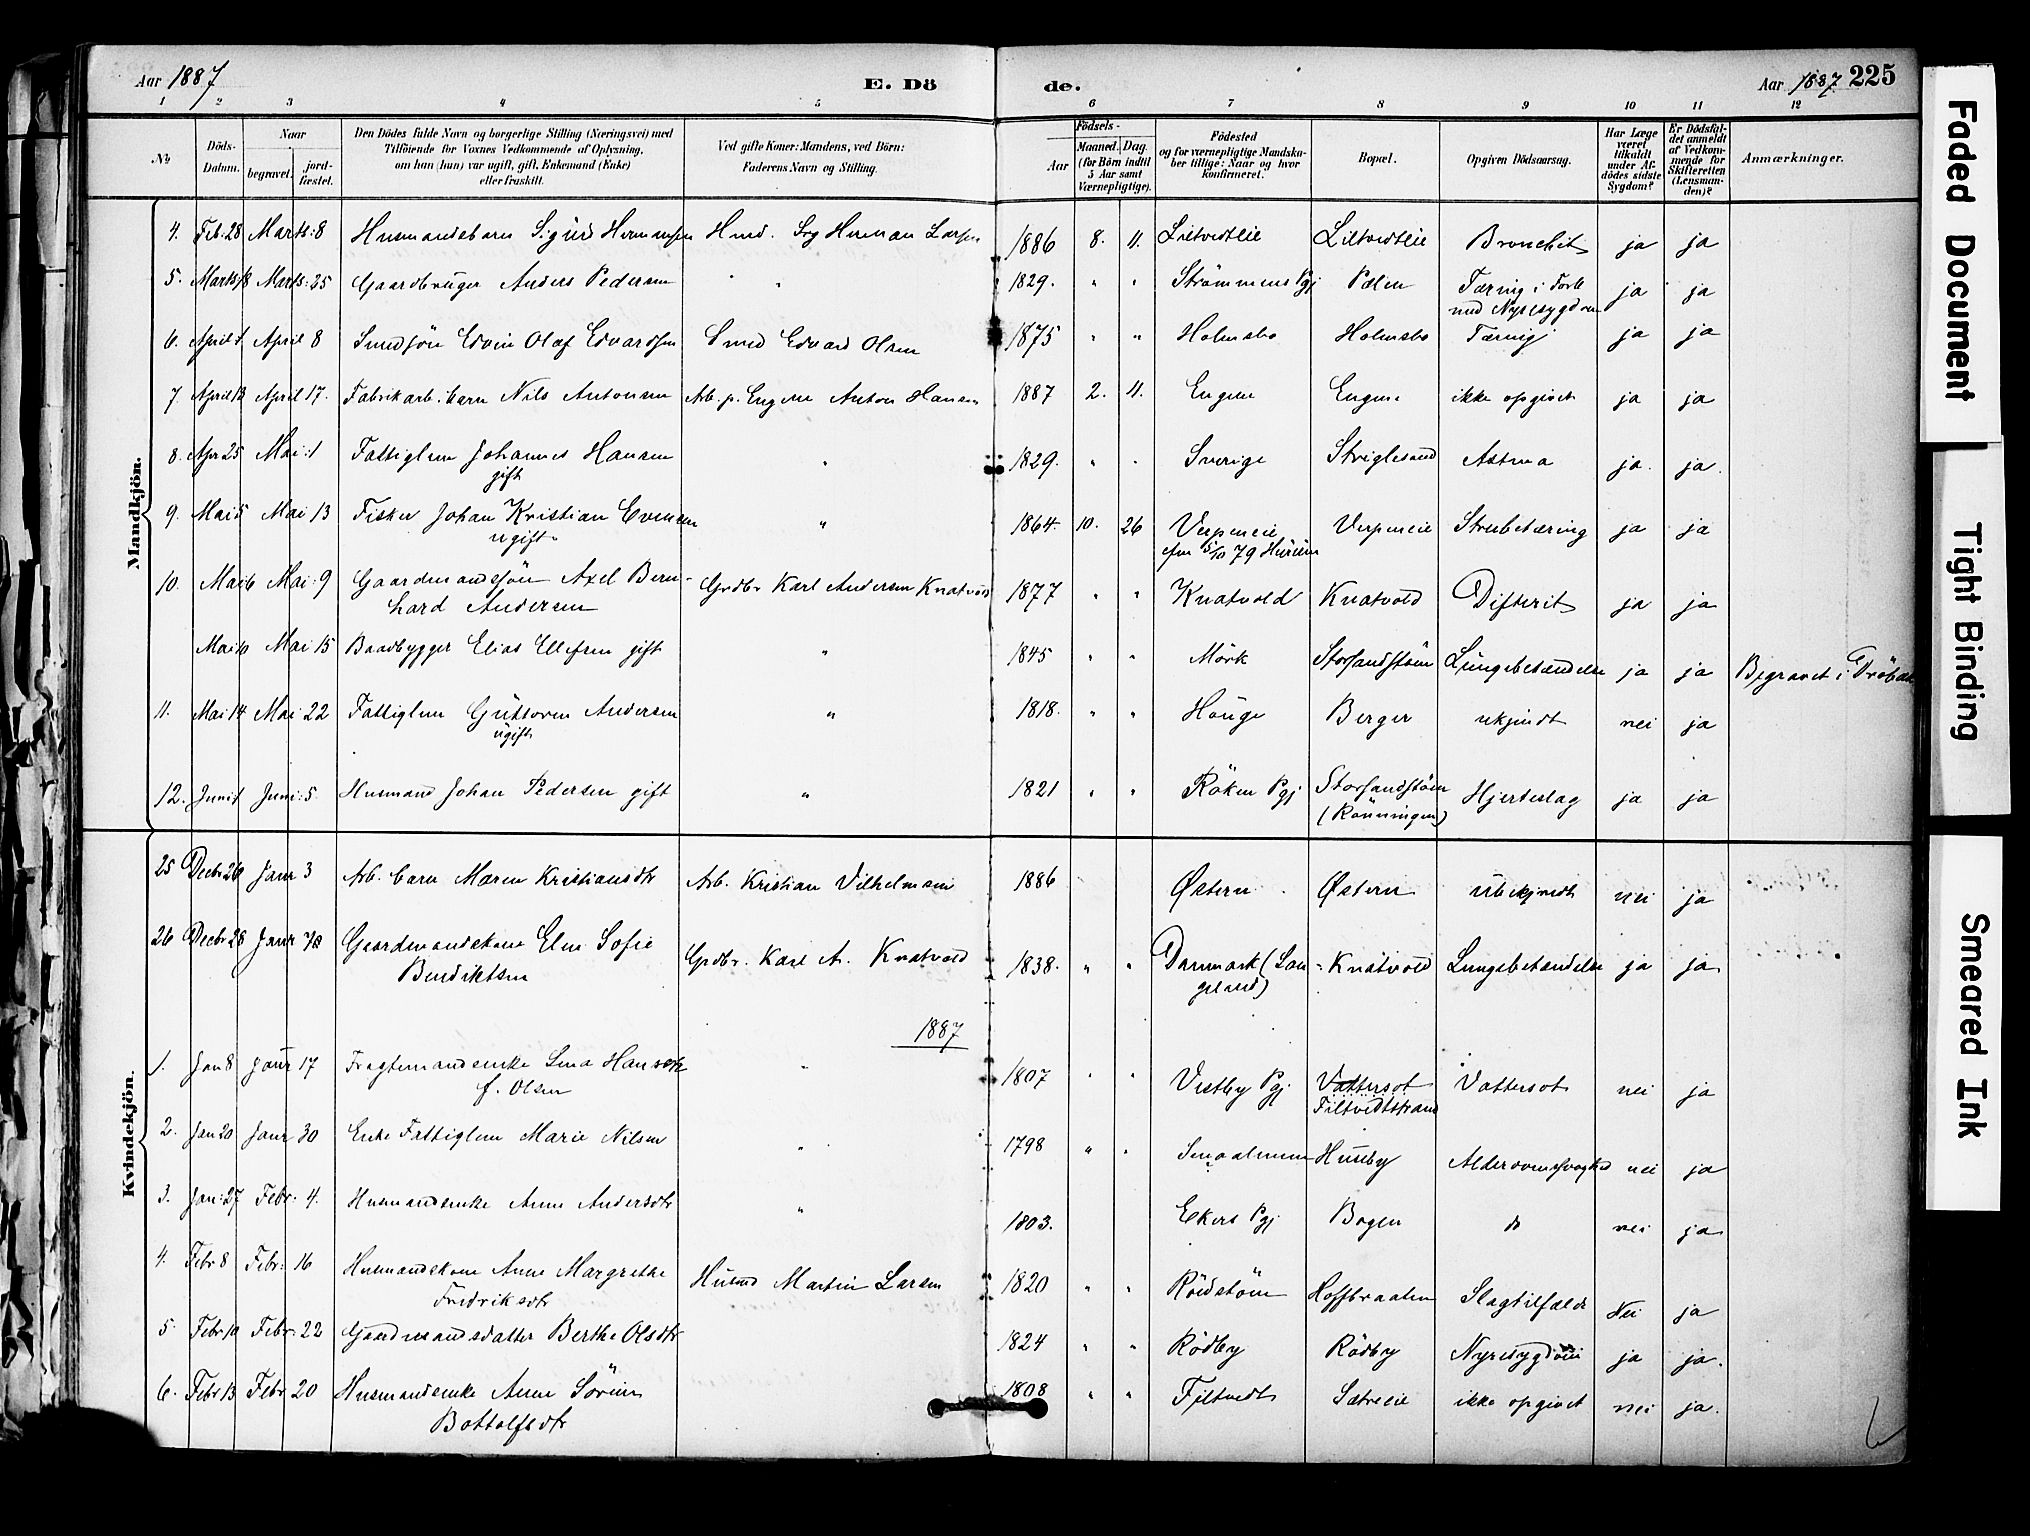 Aar 1887 E. Dö de. Aar 1887 225
1 2 3 4 5 6 7 8 9 10 11 12
No
Döds-Datum.
Naar
begravet.
jordfæstet.
Den Dödes fulde Navn og borgerlige Stilling (Næringsvei) med
Tilföiende for Voxnes Vedkommende af Oplysning,
om han (hun) var ugift, gift, Enkemand (Enke)
eller fraskilt.
Ved gifte Koner: Mandens, ved Börn:
Faderens Navn og Stilling.
Födsels-
Aar
Maaned. Dag.
(for Börn indtil
5 Aar samt
Værnepligtige).
Födested
og for værnepligtige Mandska-
ber tillige: Naar og hvor
konfirmeret.
Bopæl.
Opgiven Dödsaarsag.
Har Læge
været
tilkaldt
under Af-
dödes sidste
Sygdom?
Er Dödsfal-
det anmeldt
af Vedkom-
mende for
Skifteretten
(Lensman-
den)?
Anmærkninger.
Mandkjön.
4. Feb: 28 Marts: 8 Husmandsbarn Sigurd Hermansen Hmd. Herman Larsen 1886 8. 11. Bronchit ja ja
5. Marts 18 Marts: 25 Gaardbruger Anders Pedersen " 1829. " " Strömmens Pgj Pælen Tæring i Forb ja ja
med Nyresygdom
6. April 1 April 8 Smedsön Edvin Olaf Edvardsen Smed Edvard Olsen 1875 " " Holmsbo Holmsbo Tæring ja ja
7. April 13 April 17. Fabrikarb. barn Nils Antonsen Arb. p. Engene Anton Hansen 1887 2. 11. Engene Engene ikke opgivet ja ja
8. Apr 25 Mai: 1 Fattiglem Johannes Hansen " 1829. " " Sverige Striglesund Astma ja. ja.
gift
9. Mai 5 Mai 13 Fisker Johan Kristian Evensen " 1864. 10. 26 Verpeneie Verpeneie Strubetæring ja ja
ugift
10. Mai 6 Mai: 9 Gaardmandssön Axel Bern- Grdbr Karl Andersen Knatvold 1877 " " Knatvold Knatvold Difterit ja ja
hard Andersen
Mai 10 Mai 15 Baadbygger Elias Ellefsen gift " 1845 " " Mörk Storsandströn Lungebetændelse ja ja Begravet i Dröbak
11. Mai 14 Mai 22 Fattiglem Guttorm Andersen " 1818. " " Hauge Berger ukjendt nei ja
ugift
12. Juni 1 Juni: 5. Husmand Johan Pedersen gift " 1821 " " Röken Pgj Hjerteslag ja ja
(Rönningen)
Kvindekjön.
25 Decbr 26 Janr 3 Arb. barn Maren Kristiansdtr Arb. Kristian Vilhelmsen 1886 Østern Østern ubekjendt nei ja
26 Decbr 28 Janr Gaardmandskone Sofie Grdbr. Karl A. Knatvold 1838. " " Danmark (Lan- Knatvold Lungebetændelse ja ja
Bendiktsen
geland)
1887
1. Jan 8 Janr 17 Fragtemandsenke Lena Hansdtr " 1807 " " Vestby Pgj Vattersot Vattersot nei ja
f. Olsen
Filtvedtstrand
2. Jan 20 Janr 30 Enke Fattiglem Marie Nilsen " 1798 " " Smaalenene Husby Alderdomssvaghed nei ja
3. Jan: 27 Febr: 4. Husmandsenke Anne Andersdtr " 1803. Ekers Pgj Bogen do nei ja
4. Febr 8 Febr: 16 Husmandskone Anne Margrethe Husmd Martin Larsen 1820 " " Hoffbraaten Slagtilfælde Nei ja
Fredriksdtr
5. Febr 10 Febr: 22 Gaardmandsdatter Berthe Olsdtr 1824 " " Rödby Rödby Nyresygdom ja ja.
6. Febr 13 Febr 20 Husmandsenke Anne Sörine 1808 " " Filtvedt Sætreeie ikke opgivet nei ja.
Bottolfsdtr
Faded Document
Tight Binding
Smeared Ink